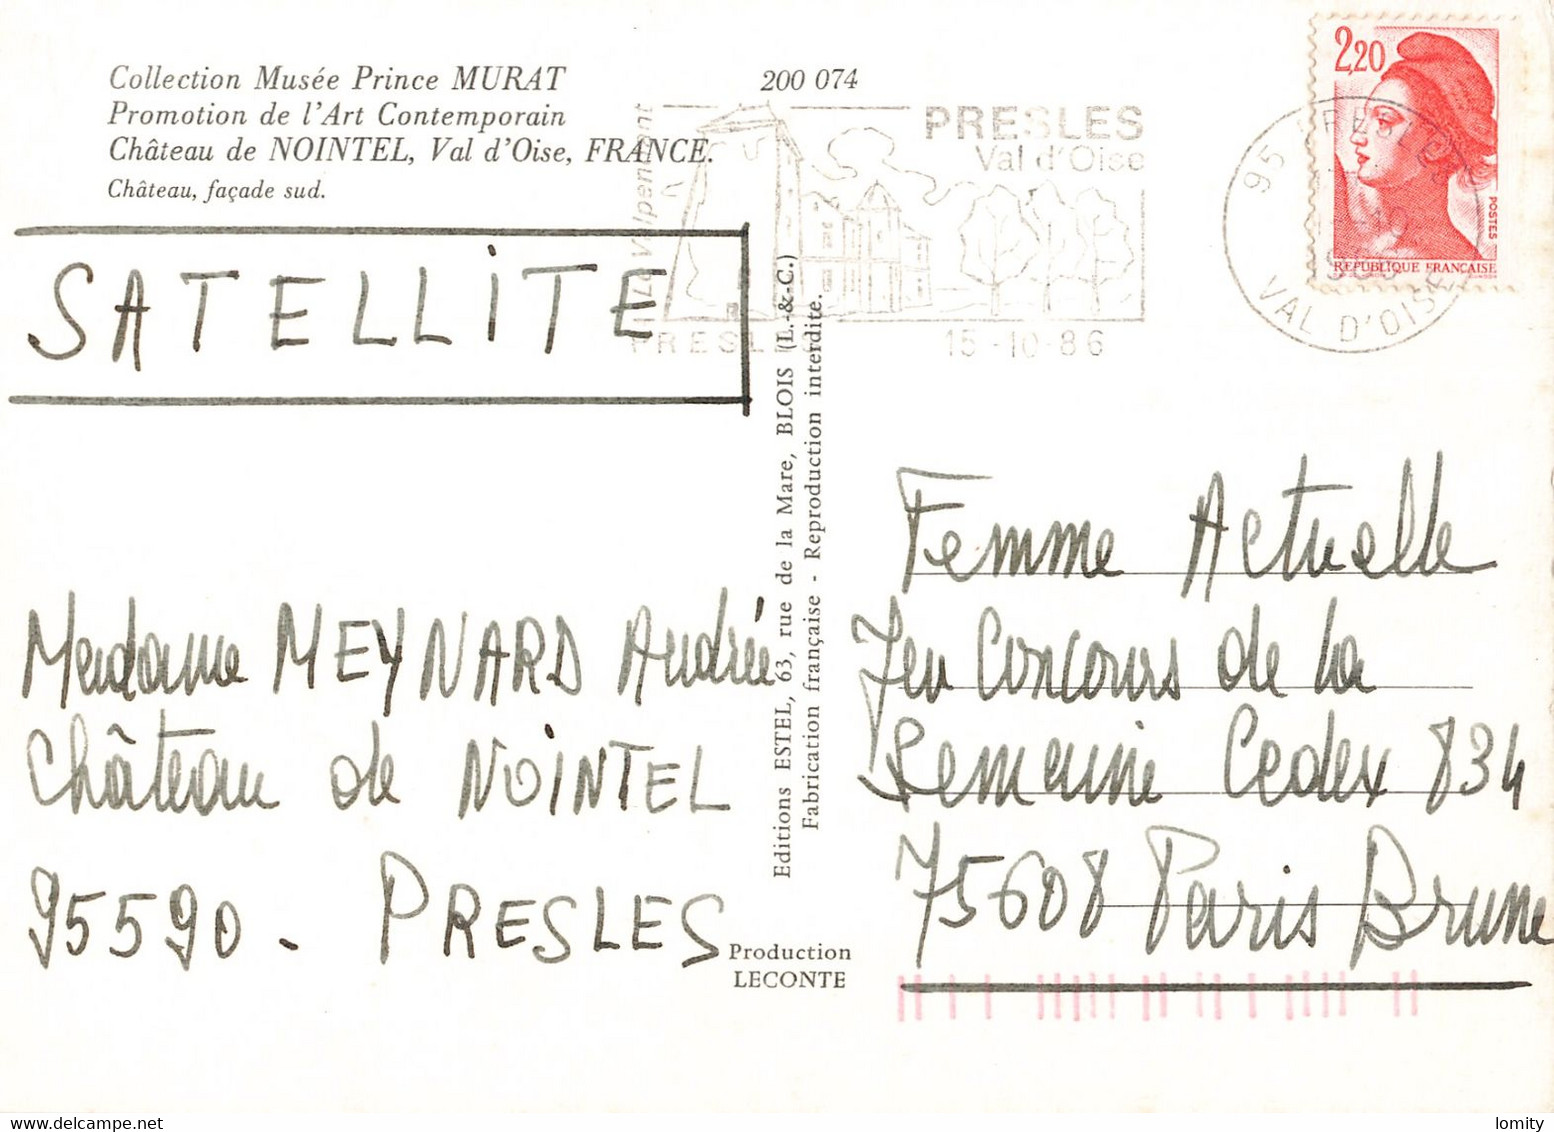 Collection Musée Prince MURAT
Promotion de l'Art Contemporain
Château de NOINTEL, Val d'Oise, FRANCE.
Château, façade sud.
200 074
PRESLES
Val d'Oise
PRESLES
15-10-86
95 PRESLES
VAL D'OISE
2,20
POSTES
REPUBLIQUE FRANCAISE
SATELLITE
Madame MEYNARD Andrée
Château de NOINTEL
95590 - PRESLES
Editions ESTEL, 63, rue de la Mare, BLOIS (L.-&-C.)
Fabrication française - Reproduction interdite.
Production
LECONTE
Femme Actuelle
Jeu Concours de la
Semaine Cedex 834
75608 Paris Brune
delcampe.net
lomity